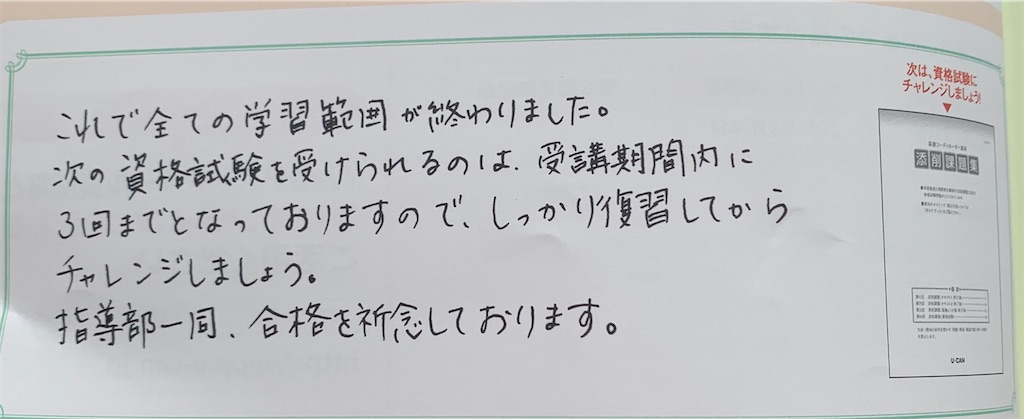 これで全ての学習範囲が終わりました。
次の資格試験を受けられるのは、受講期間内に
3回までとなっておりますので、しっかり復習してから
チャレンジしましょう。
指導部一同、合格を祈念しております。
次は、資格試験に
チャレンジしましょう!
添削課題集
U-CAN